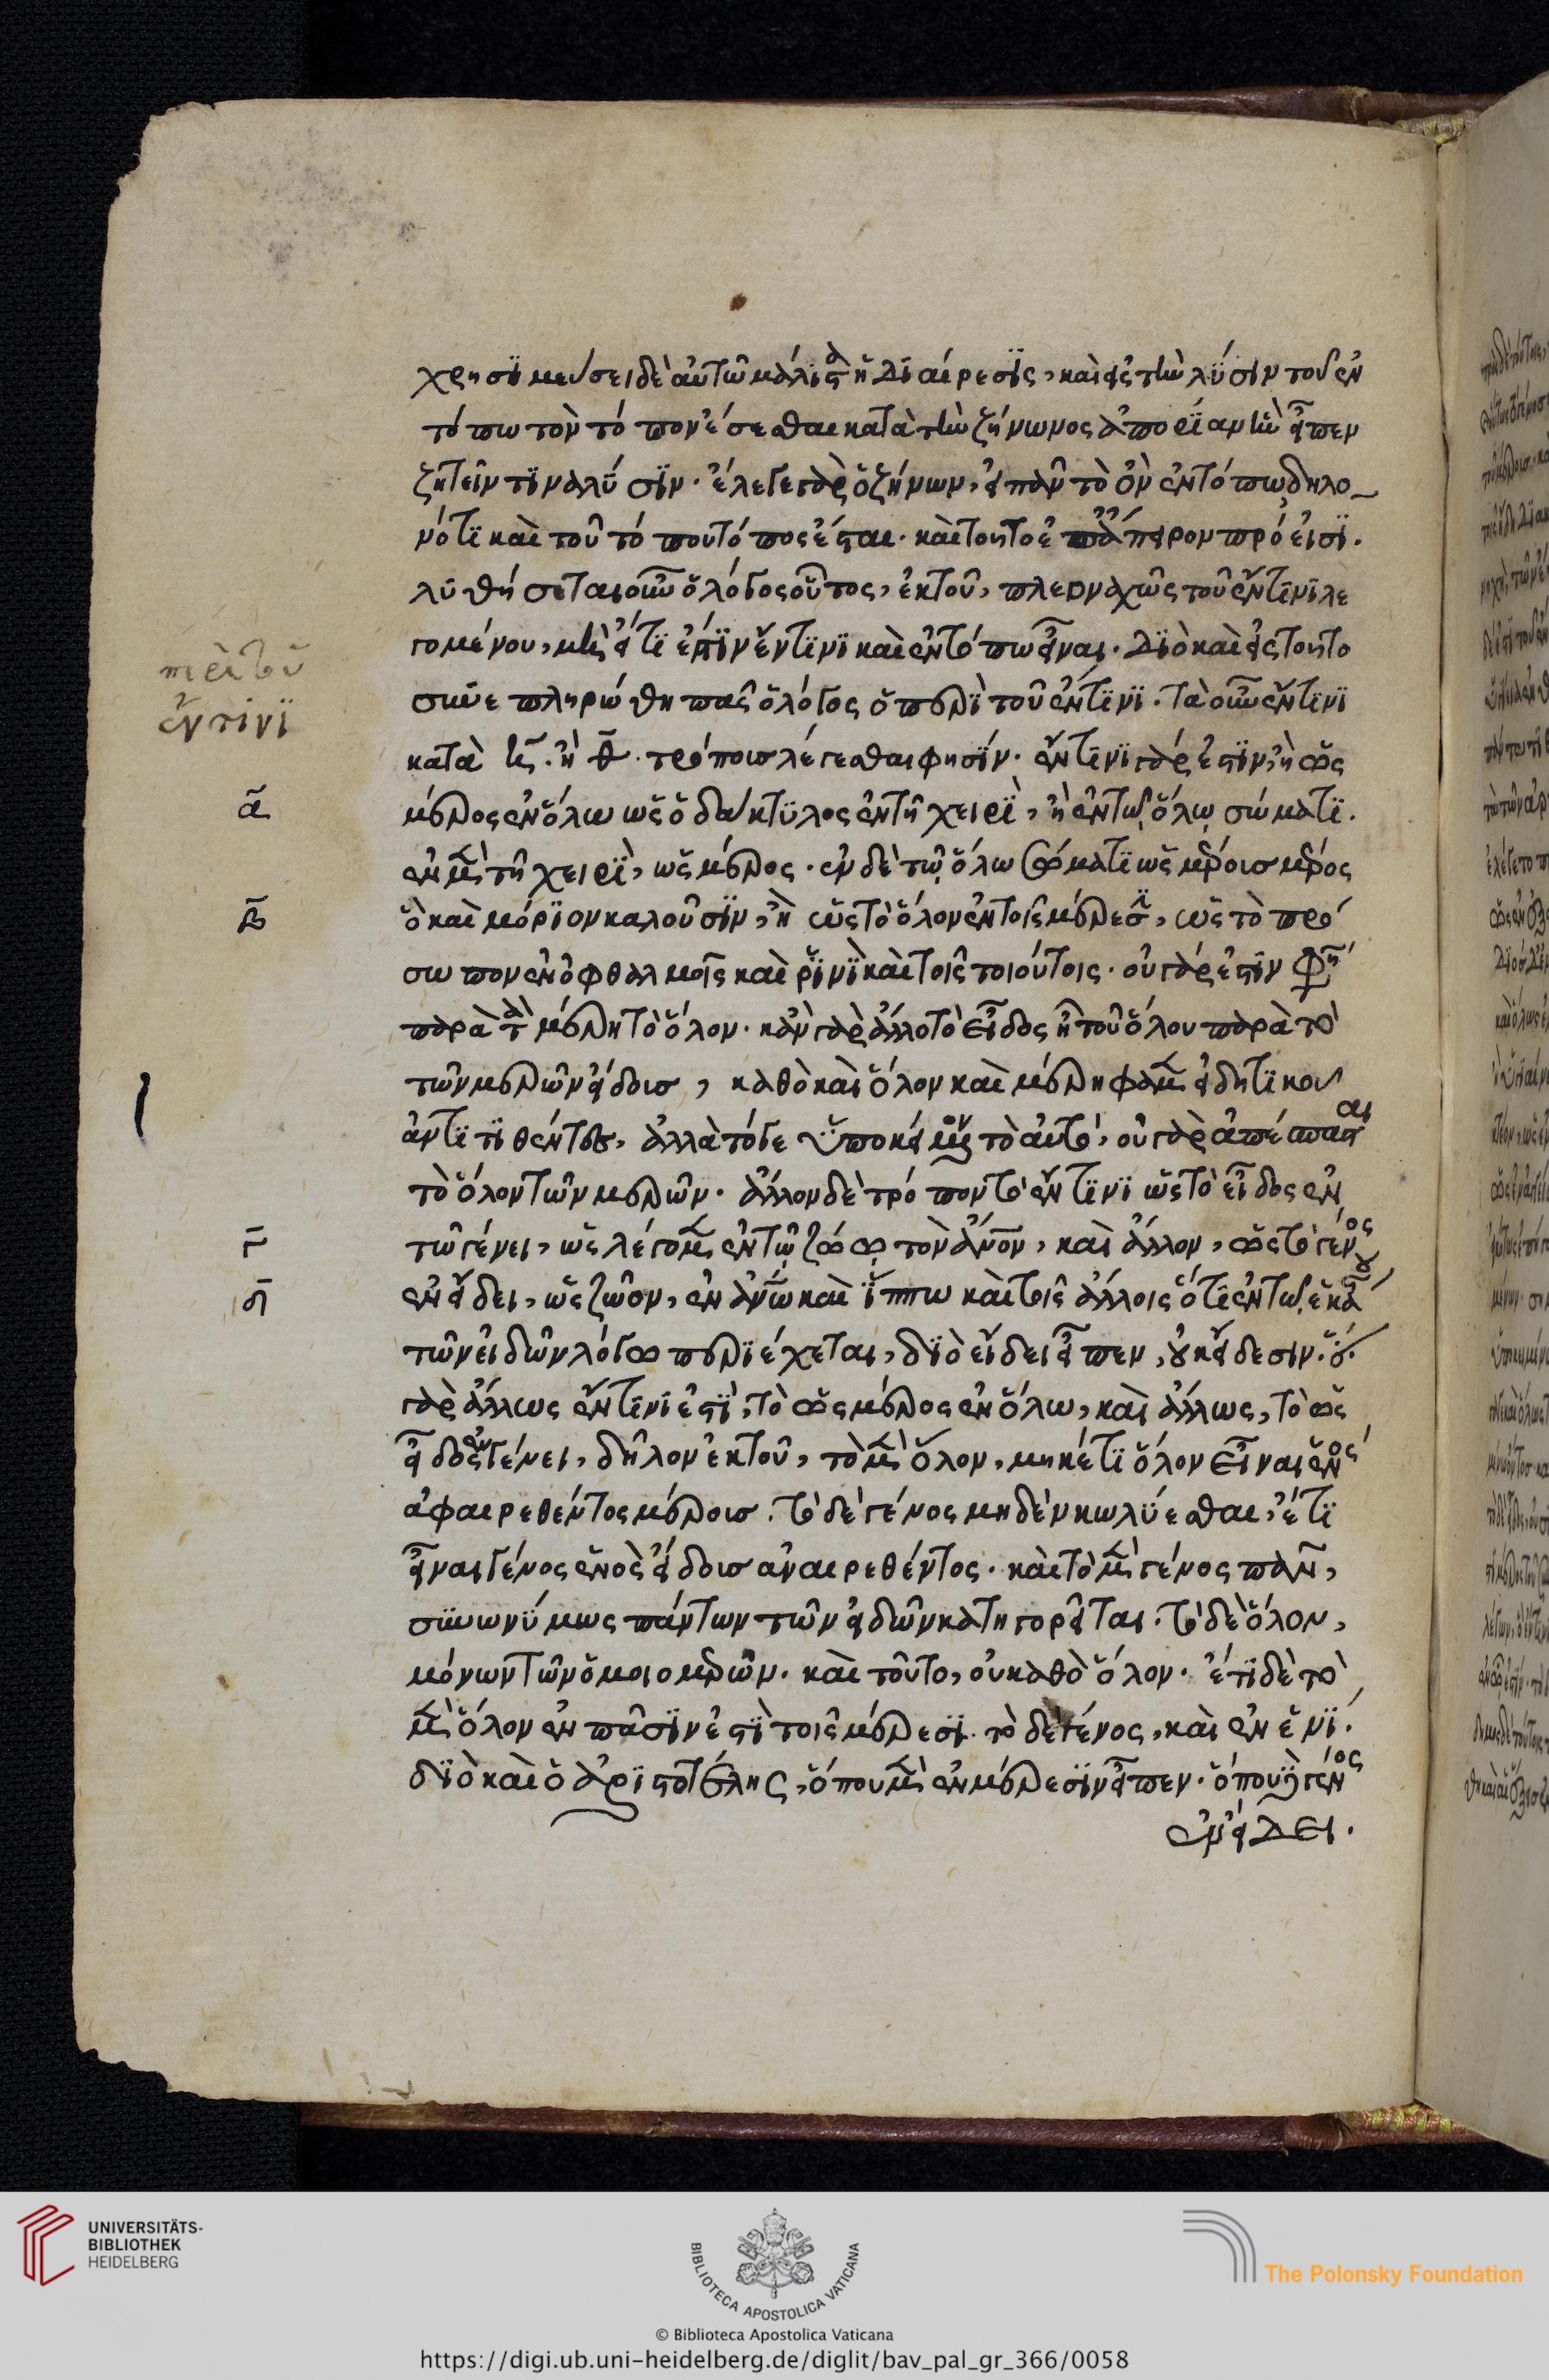 χρησιμεύσει δὲ αὐτῶ μάλιστα ἡ διαίρεσις, καὶ εἰς τὴν λύσιν τοῦ ἐν
τόπω τὸν τόπον ἔσεσθαι κατὰ τὴν ζήνωνος ἀπορίαν ἣν εἶπεν
ζητεῖν τινα λύσιν. ἔλεγε γὰρ ὁ ζήνων, εἰ πᾶν τὸ ὂν ἐν τόπω, δηλο
νότι καὶ τοῦ τόπου τόπος ἔσται. καὶ τοῦτο ἐπ' ἄπειρον πρόεισι.
λυθήσεται οὖν ὁ λόγος οὗτος, ἐκ τοῦ, πλεοναχῶς τοῦ ἔν τινι λε
γομένου, μὴ εἴ τι ἐστὶν ἔν τινι καὶ ἐν τόπω εἶναι. διὸ καὶ εἰς τοῦτο
συνεπληρώθη πᾶς ὁ λόγος ὁ περὶ τοῦ ἔν τινι. τὰ οὖν ἔν τινι
κατὰ η. ἢ θ. τρόπους λέγεσθαι φησίν. ἔν τινι γάρ ἐστιν, ἢ ὡς
μέρος ἐν ὅλω ὡς ὁ δάκτυλος ἐν τῆ χειρὶ, ἢ ἐν τῶ ὅλω σώματι.
ἐν μὲν τῆ χειρὶ, ὡς μέρος. ἐν δὲ τῶ ὅλω σώματι ὡς μέρους μέρος
ὃ καὶ μόριον καλοῦσιν, ἢ ὡς τὸ ὅλον ἐν τοῖς μέρεσι, ὡς τὸ πρό
σωπον ἐν ὀφθαλμοῖς καὶ ῥινὶ καὶ τοῖς τοιούτοις. οὐ γάρ ἐστιν φη
παρὰ τὰ μέρη τὸ ὅλον. κἂν γὰρ ἄλλο τὸ εἶδος ἦ τοῦ ὅλου παρὰ τὸ
τῶν μερῶν εἶδους, καθὸ καὶ ὅλον καὶ μέρη φαμὲν εἰδητικοῦ
ἀντιτιθέντες, ἀλλὰ τό γε ὑποκείμενον τὸ αὐτό, οὐ γὰρ ἀπέσπασται
τὸ ὅλον τῶν μερῶν. ἄλλον δὲ τρόπον τὸ ἔν τινι ὡς τὸ εἶδος ἐν
τῶ γένει, ὡς λέγομεν ἐν τῶ ζώω τὸν ἄνον, καὶ ἄλλον, ὡς τὸ γένος
ἐν εἴδει, ὡς ζῶον, ἐν ἄνω καὶ ἵππω καὶ τοῖς ἄλλοις ὅτι ἐν τῶ ἑκάστου
τῶν εἰδῶν λόγω περιέχεται, διὸ εἴδει εἶπεν, οὐκ εἴδεσιν. ὅ.
γὰρ ἄλλως ἔν τινι ἐστὶ, τὸ ὡς μέρος ἐν ὅλω, καὶ ἄλλως, τὸ ὡς
εἶδος ἐν γένει, δῆλον ἐκ τοῦ, τὸ μὲν ὅλον, μηκέτι ὅλον εἶναι ἑνὸς
ἀφαιρεθέντος μέρους. τὸ δὲ γένος μηδὲν κωλύεσθαι, ἔτι
εἶναι γένος ἑνὸς εἴδους ἀναιρεθέντος. καὶ τὸ μὲν γένος πᾶν,
συνωνύμως πάντων τῶν εἰδῶν κατηγορεῖται. τὸ δὲ ὅλον,
μόνων τῶν ὁμοιομερῶν. καὶ τοῦτο, οὐ καθὸ ὅλον. ἔτι δὲ τὸ
μὲν ὅλον ἐν πᾶσιν ἐστὶ τοῖς μέρεσι. τὸ δὲ γένος, καὶ ἐν ἑνί.
διὸ καὶ ὁ ἀριστοτέλης, ὅπου μὲν ἐν μέρεσιν εἶπεν. ὅπου δὲ γένος
ἐν εἴδει.
περὶ τοῦ
ἔν τινι
α
β
γ
δ
UNIVERSITÄTS-
BIBLIOTHEK
HEIDELBERG
BIBLIOTECA APOSTOLICA VATICANA
The Polonsky Foundation
© Biblioteca Apostolica Vaticana
https://digi.ub.uni-heidelberg.de/diglit/bav_pal_gr_366/0058